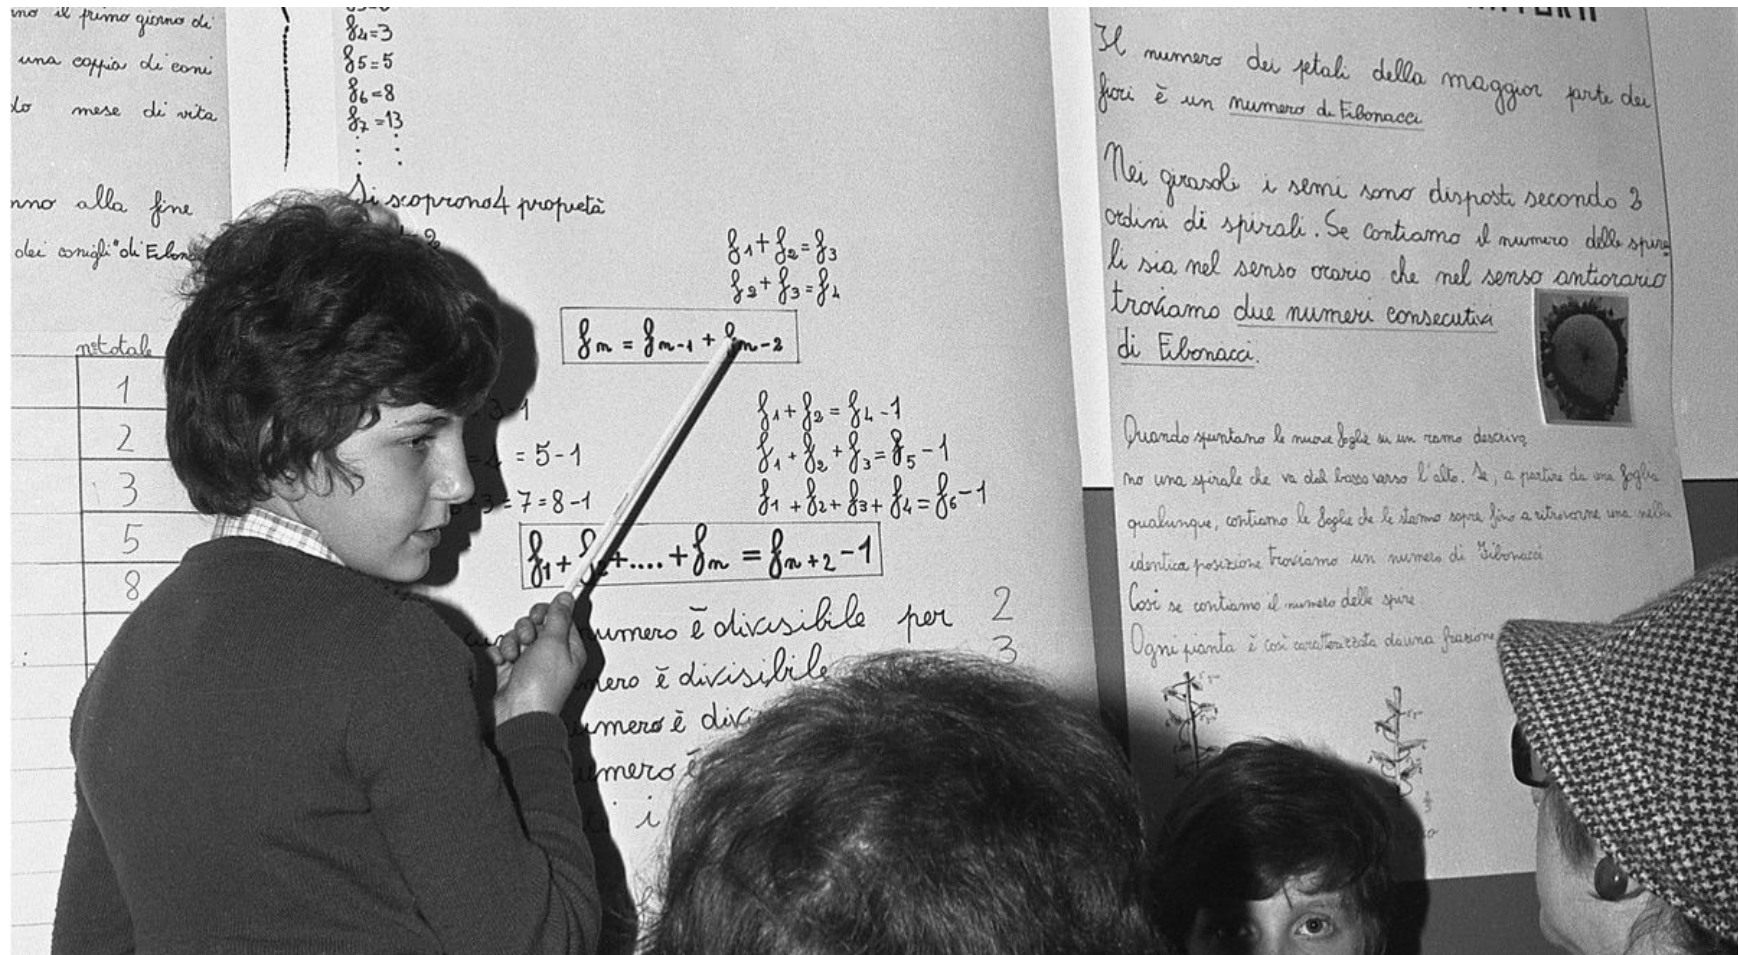 il primo giorno di
una coppia di coni
mese di vita
alla fine
dei conigli" di Fibon
n°totale
1
2
3
5
8
f4=3
f5=5
f6=8
f7=13
Si scoprono 4 proprietà
f1+f2=f3
f2+f3=f4
fn = fn-1 + fn-2
3-1
= 5-1
+3=7=8-1
f1+f2=f4-1
f1+f2+f3=f5-1
f1+f2+f3+f4=f6-1
f1+f2+....+fn = fn+2-1
numero è divisibile per 2
mero è divisibile 3
umero è divi
umero è
i
Il numero dei petali della maggior parte dei
fiori è un numero di Fibonacci
Nei girasoli i semi sono disposti secondo 2
ordini di spirali. Se contiamo il numero delle spira
li sia nel senso orario che nel senso antiorario
troviamo due numeri consecutivi
di Fibonacci.
Quando spuntano le nuove foglie su un ramo descrivo
no una spirale che va dal basso verso l'alto. Se, a partire da una foglia
qualunque, contiamo le foglie che le stanno sopra fino a ritrovarne una nella
identica posizione troviamo un numero di Fibonacci
Così se contiamo il numero delle spire
Ogni pianta è così caratterizzata da una frazione